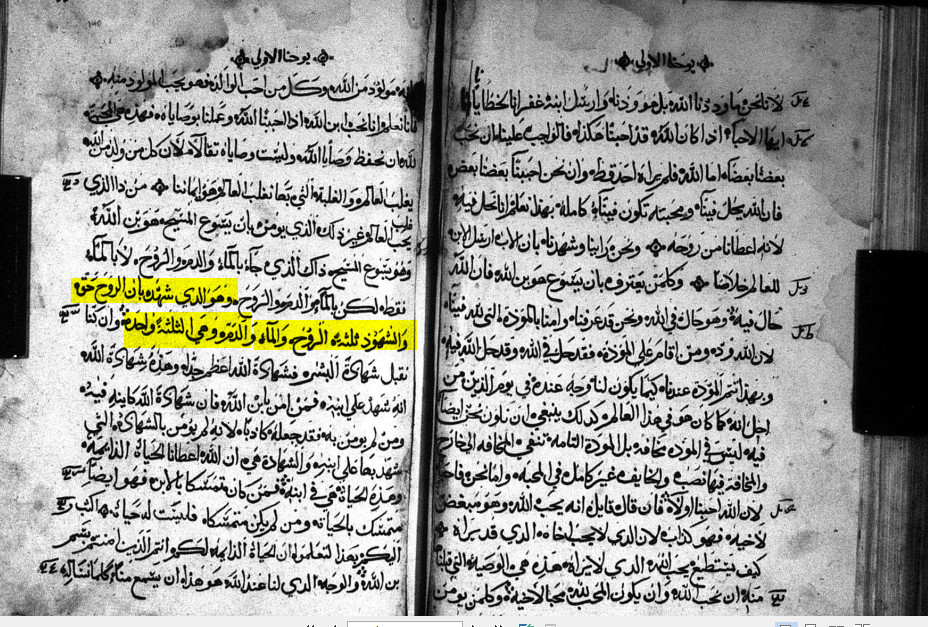 يوحنا الاولي
لانا نحن ما وددنا الله بل هو ودنا وارسل ابنه غفرانا لخطايانا
ايها الاحباء اذا كان الله قد احبنا هكذا فالواجب علينا ان نحب
بعضنا بعضا اما الله فلم يراه احد قط وان نحن احببنا بعضنا بعض
فان الله يحل فينا ومحبته تكون فينا كامله بهذا نعلم انا نحل فيه
لانه اعطانا من روحه ونحن راينا وشهدنا بان الاب ارسل الابن
للعالم خلاصا وكل من يعترف بان يسوع هو بن الله فان الله
حال فيه وهو حال في الله ونحن قد عرفنا وامنا بالمودة التي لله فينا
لان الله ود ومن اقام علي المودة فقد حل في الله وقد حل الله فيه
وبهذا تتم المودة عندنا كيما يكون لنا وجه عنده في يوم الدين من
اجل انه كما كان هو في هذا العالم كذلك ينبغي ان نكون نحن ايضا
فيه ليس في المودة مخافة بل المودة التامه تنفي المخافه الي خارج
والمخافة فيها نصب والخايف غير كامل في المحبه واما نحن
لان الله احبنا اولا فان قال قايل انه يحب الله وهو مبغض
لاخيه فهو كذاب لان الذي لا يحب اخاه الذي قد يراه
كيف يستطيع يحب الله الذي لا يراه هذه هي الوصيه التي قبلنا
منه ان نحب الله وان يكون المحب لله محبا لاخيه وكل من يومن
يوحنا الاولي
مولود من الله وكل من احب الوالد فهو يحب المولود منه
فانا نعلم انا نحب ابن الله اذا احببنا الله وعملنا بوصاياه فهذه هي المحبة
لله ان نحفظ وصايا الله وليست وصاياه ثقالا لان كل من ولد من الله
يغلب العالم والغلبة التي بها نغلب العالم هو ايماننا من ذا الذي
يغلب العالم غير ذلك الذي يومن بان يسوع المسيح هو بن الله
وهو يسوع المسيح ذاك الذي جاء بالماء والدم والروح لا بالماء
فقط لكن بالماء والدم والروح وهو الذي شهد بان الروح حق
والشهود ثلثه الروح والماء والدم وهي الثلثة واحدة وان كنا
نقبل شهادة البشر فشهادة الله اعظم جدا وهذه شهادة الله
انه شهد علي ابنه فمن امن بابن الله فان شهادة الله كاينه فيه
ومن لم يومن به فقد جعله كاذبا لانه لم يومن بالشهادة التي
شهد بها علي ابنه والشهادة هي ان الله اعطانا الحياة الدايمة
وهذه الحياة هي في ابنه فمن كان متمسكا بالابن فهو ايضا
متمسك بالحياة ومن لم يكن متمسكا فليست له حياة اكتب
اليكم بهذا لتعلموا ان الحياة الدايمه لكم انتم الذين امنتم باسم
بن الله والوجه الذي لنا عند الله هو هذا ان يسمع منا كلما نساله